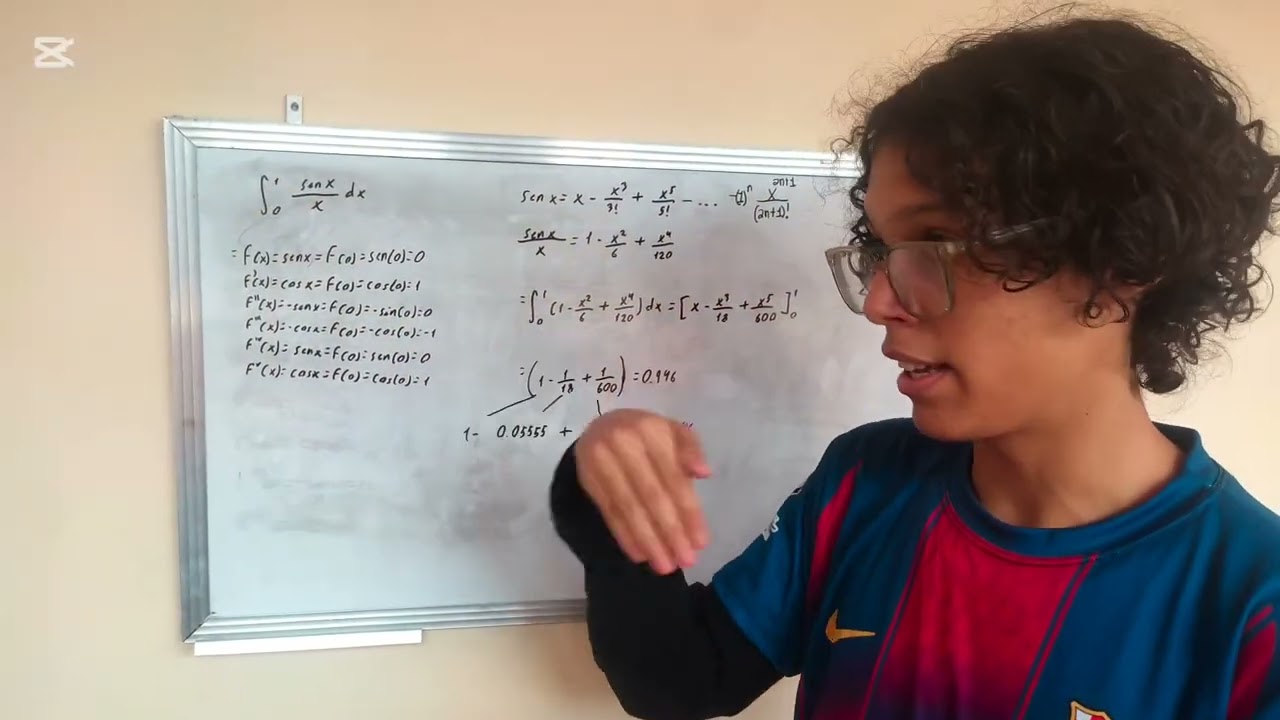 ∫₀¹ sen x / x dx
= f(x)=senx=f(0)=sen(0)=0
f'(x)=cosx=f(0)=cos(0)=1
f''(x)=-senx=f(0)=-sin(0)=0
f'''(x)=-cosx=f(0)=-cos(0)=-1
f''''(x)=senx=f(0)=sen(0)=0
fᵛ(x)=cosx=f(0)=cos(0)=1
sen x = x - x³/3! + x⁵/5! - ... -(1)ⁿ x²ⁿ⁺¹/(2n+1)!
sen x / x = 1 - x²/6 + x⁴/120
= ∫₀¹ (1 - x²/6 + x⁴/120) dx = [x - x³/18 + x⁵/600]₀¹
= (1 - 1/18 + 1/600) = 0.946
1 - 0.05555 +